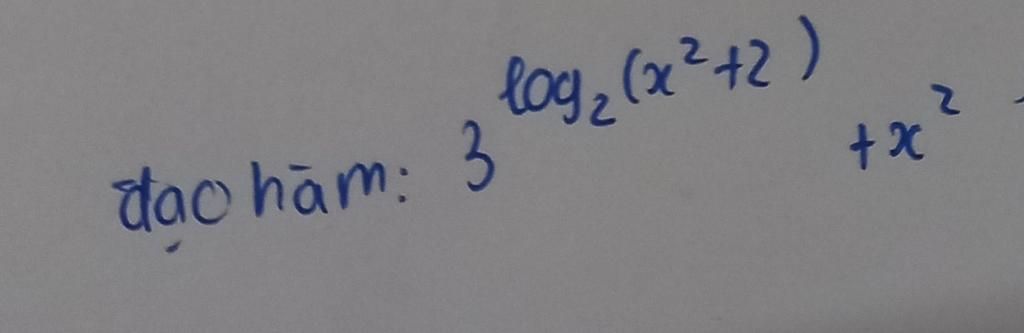 đạo hàm: 3^{log_2(x^2+2)} + x^2